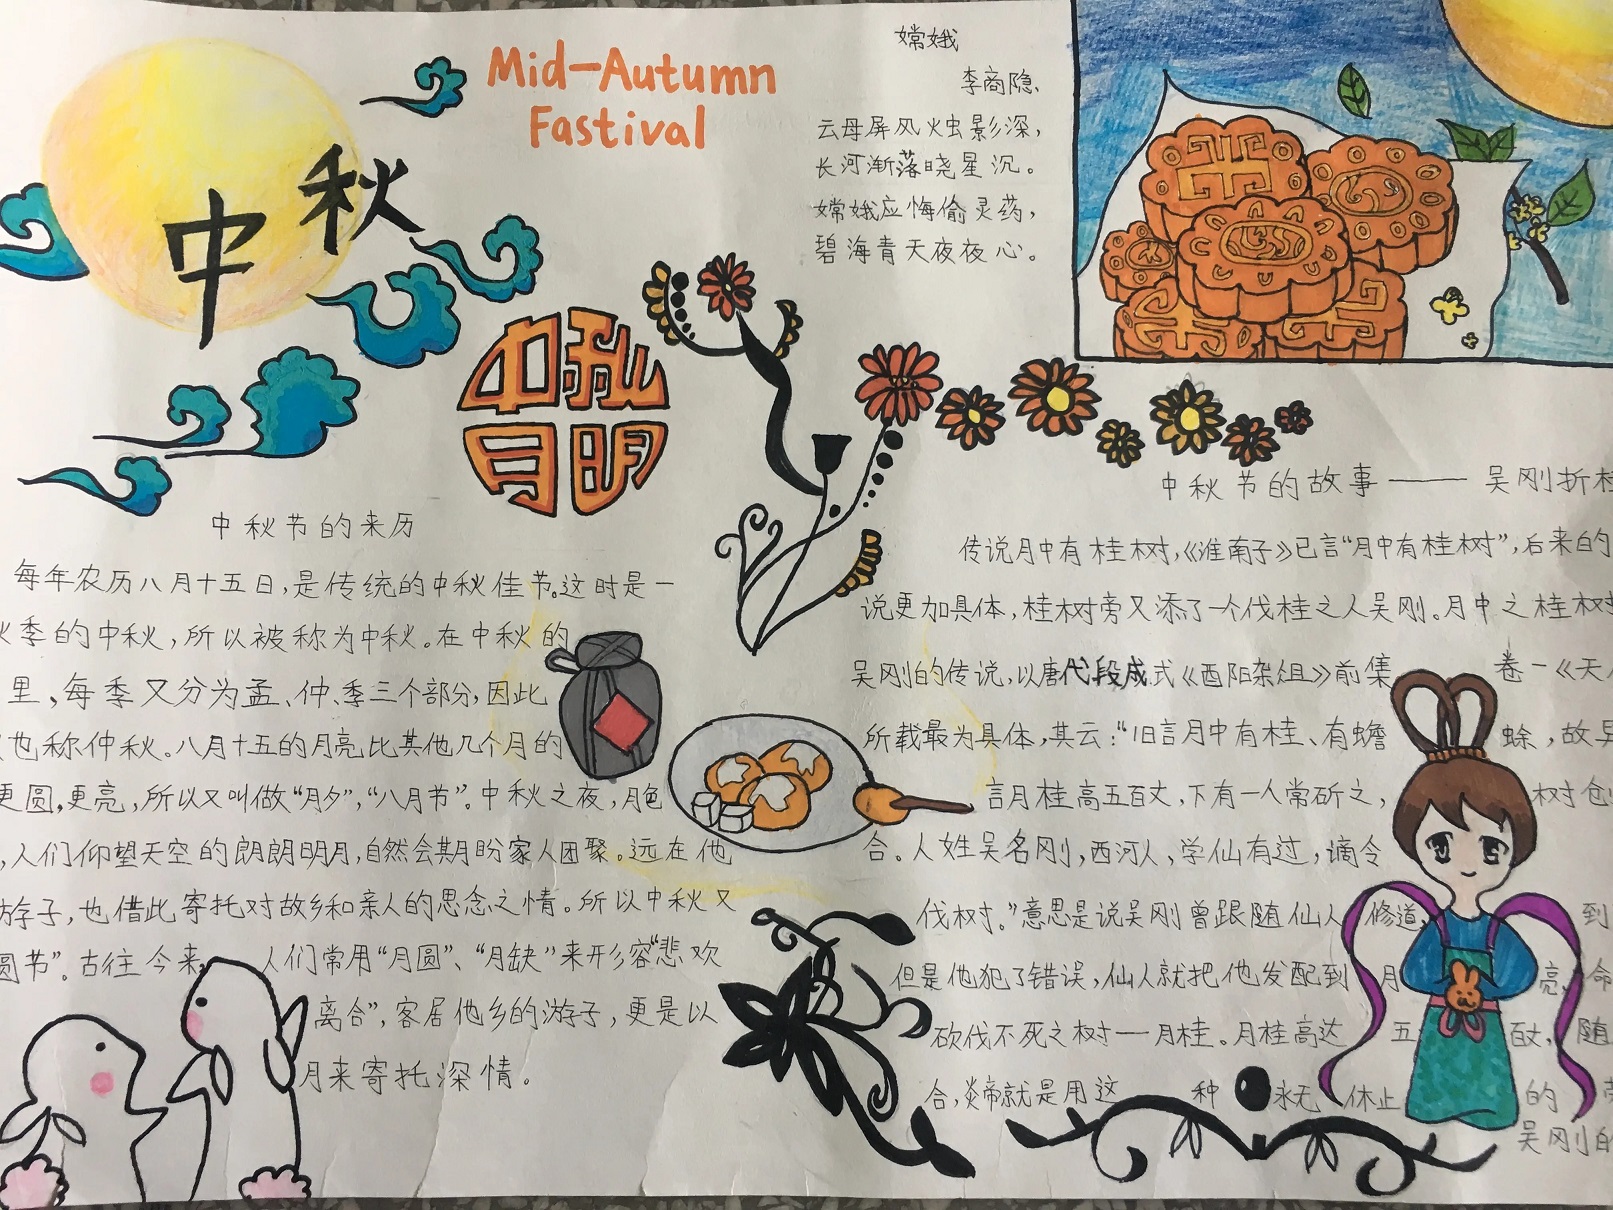 中秋
Mid-Autumn
Fastival
中秋
月明
嫦娥
李商隐
云母屏风烛影深，
长河渐落晓星沉。
嫦娥应悔偷灵药，
碧海青天夜夜心。
中秋节的来历
每年农历八月十五日，是传统的中秋佳节。这时是一
季的中秋，所以被称为中秋。在中秋的
里，每季又分为孟、仲、季三个部分，因此
也称仲秋。八月十五的月亮比其他几个月的
更圆，更亮，所以又叫做“月夕”，“八月节”。中秋之夜，月色
，人们仰望天空的朗朗明月，自然会期盼家人团聚。远在他
游子，也借此寄托对故乡和亲人的思念之情。所以中秋又
圆节”。古往今来，人们常用“月圆”、“月缺”来形容“悲欢
离合”，客居他乡的游子，更是以
月来寄托深情。
中秋节的故事——吴刚折桂
传说月中有桂树，《淮南子》已言“月中有桂树”，后来的
说更加具体，桂树旁又添了一个伐桂之人吴刚。月中之桂树
吴刚的传说，以唐代段成式《酉阳杂俎》前集 卷一《天
所载最为具体，其云：“旧言月中有桂、有蟾 蜍，故异
言月桂高五百丈，下有一人常斫之， 树创
合。人姓吴名刚，西河人，学仙有过，谪令
伐树。”意思是说吴刚曾跟随仙人 修道， 到
但是他犯了错误，仙人就把他发配到 月 亮，命
砍伐不死之树——月桂。月桂高达 五 百丈，随
合，炎帝就是用这 种 永无 休止 的
吴刚的